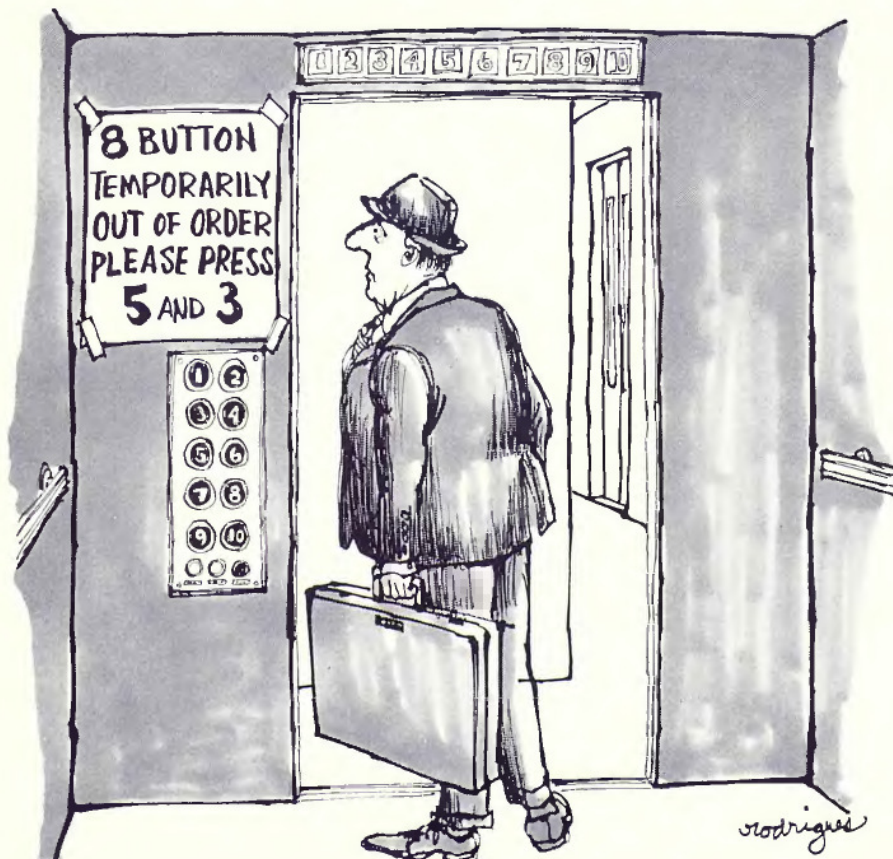 1 2 3 4 5 6 7 8 9 10
8 BUTTON
TEMPORARILY
OUT OF ORDER
PLEASE PRESS
5 AND 3
1 2
3 4
5 6
7 8
9 10
rodrigues